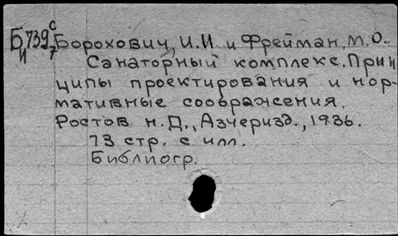 Б739 с
и 7
Борохович, И.И и Фрейман, М.О.
Санаторный комплекс. Прин
ципы проектирования и нор-
мативные соображения.
Ростов н.Д., Азчеризд., 1936.
73 стр. с илл.
Библиогр.